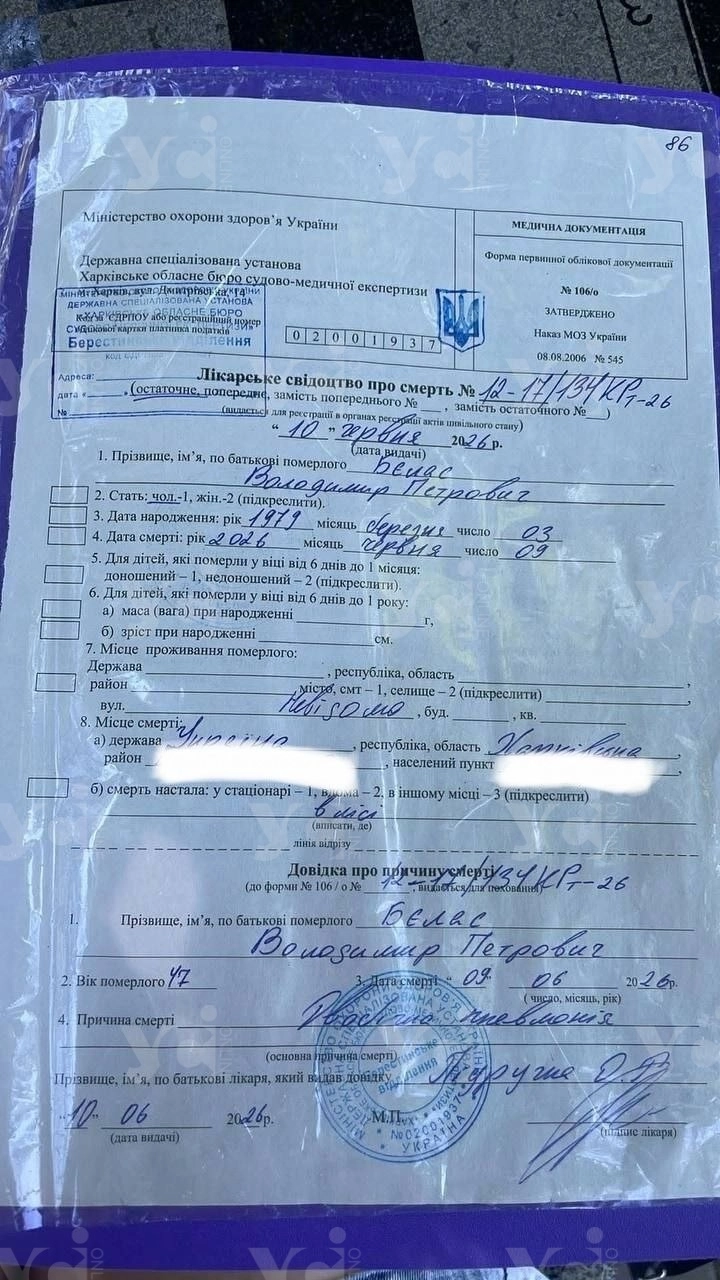 86
Міністерство охорони здоров'я України
Державна спеціалізована установа
Харківське обласне бюро судово-медичної експертизи
м. Харків, вул. Дмитрівська,
Код за ЄДРПОУ або реєстраційний номер
облікової картки платника податків
02001937
МЕДИЧНА ДОКУМЕНТАЦІЯ
Форма первинної облікової документації
№ 106/о
ЗАТВЕРДЖЕНО
Наказ МОЗ України
08.08.2006 № 545
ДЕРЖАВНА СПЕЦІАЛІЗОВАНА УСТАНОВА
ХАРКІВСЬКЕ ОБЛАСНЕ БЮРО
Берестинське відділення
Адреса:
дата «
№
Лікарське свідоцтво про смерть № 12-17/134КРт-26
(остаточне, попереднє, замість попереднього № ___, замість остаточного №___)
(видається для реєстрації в органах реєстрації актів цивільного стану)
“ 10 ” червня 2026 р.
(дата видачі)
1. Прізвище, ім'я, по батькові померлого Бєлас
Володимир Петрович
2. Стать: чол.-1, жін.-2 (підкреслити).
3. Дата народження: рік 1979 місяць березня число 03
4. Дата смерті: рік 2026 місяць червня число 09
5. Для дітей, які померли у віці від 6 днів до 1 місяця:
доношений – 1, недоношений – 2 (підкреслити).
6. Для дітей, які померли у віці від 6 днів до 1 року:
а) маса (вага) при народженні ___ г,
б) зріст при народженні ___ см.
7. Місце проживання померлого:
Держава ___, республіка, область ___,
район ___ місто, смт – 1, селище – 2 (підкреслити) ___,
вул. Невідомо, буд. ___, кв. ___
8. Місце смерті:
а) держава Україна, республіка, область Харківщина,
район ___, населений пункт ___,
б) смерть настала: у стаціонарі – 1, вдома – 2, в іншому місці – 3 (підкреслити)
в лісі
(вписати, де)
лінія відрізу
Довідка про причину смерті
(до форми № 106 / о № 12-17/134КРт-26, видається для поховання)
1. Прізвище, ім'я, по батькові померлого Бєлас
Володимир Петрович
2. Вік померлого 47 3. Дата смерті “ 09 ” 06 2026р.
(число, місяць, рік)
4. Причина смерті пневмонія
(основна причина смерті)
Прізвище, ім'я, по батькові лікаря, який видав довідку
“10” 06 2026р. М.П.
(дата видачі) (підпис лікаря)
Берестинське
відділення
№02001937
УКРАЇНА